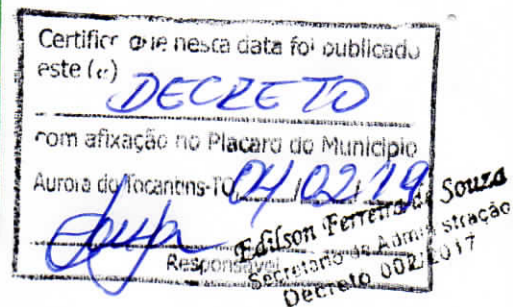 Certifico que nesta data foi publicado
este (e) DECRETO
com afixação no Placard do Município
Aurora do Tocantins-TO 04/02/19
Responsável
Edilson Ferreira de Souza
Secretário de Administração
Decreto 002/2017